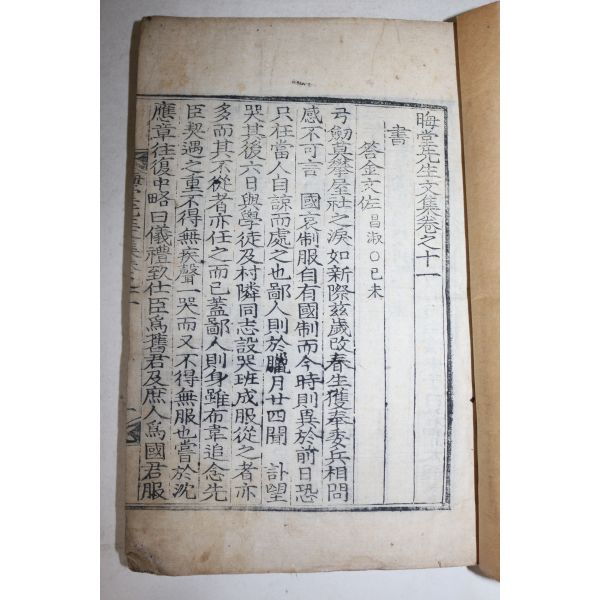 晦堂先生文集卷之十一
書
答金文佐 昌淑○己未
弓劒莫攀屋社之淚如新際玆歲改春生獲奉委兵相問
感不可言 國哀制服自有國制而今時則異於前日恐
只任當人自諒而處之也鄙人則於臘月廿四聞 訃望
哭其後六日與學徒及村隣同志設哭班成服從之者亦
多而其不從者亦任之而已蓋鄙人則身雖布韋追念先
臣契遇之重不得無疾聲一哭而又不得無服也嘗於沈
應章往復中略曰儀禮致仕臣爲舊君及庶人爲國君服